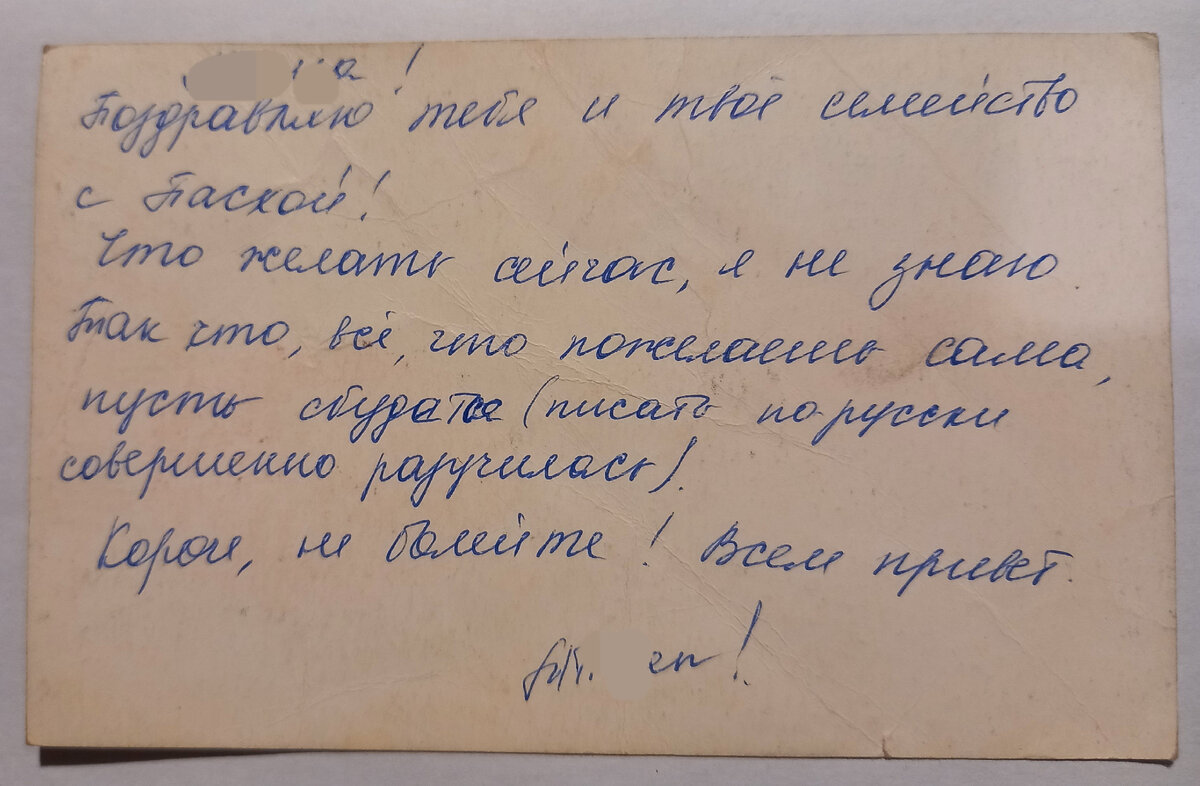 Поздравляю тебя и твоё семейство
с Пасхой!
Что желать сейчас, я не знаю
Так что, всё, что пожелаешь сама,
пусть сбудатся (писать по русски
совершенно разучилась).
Короч, не болейте! Всем привет.